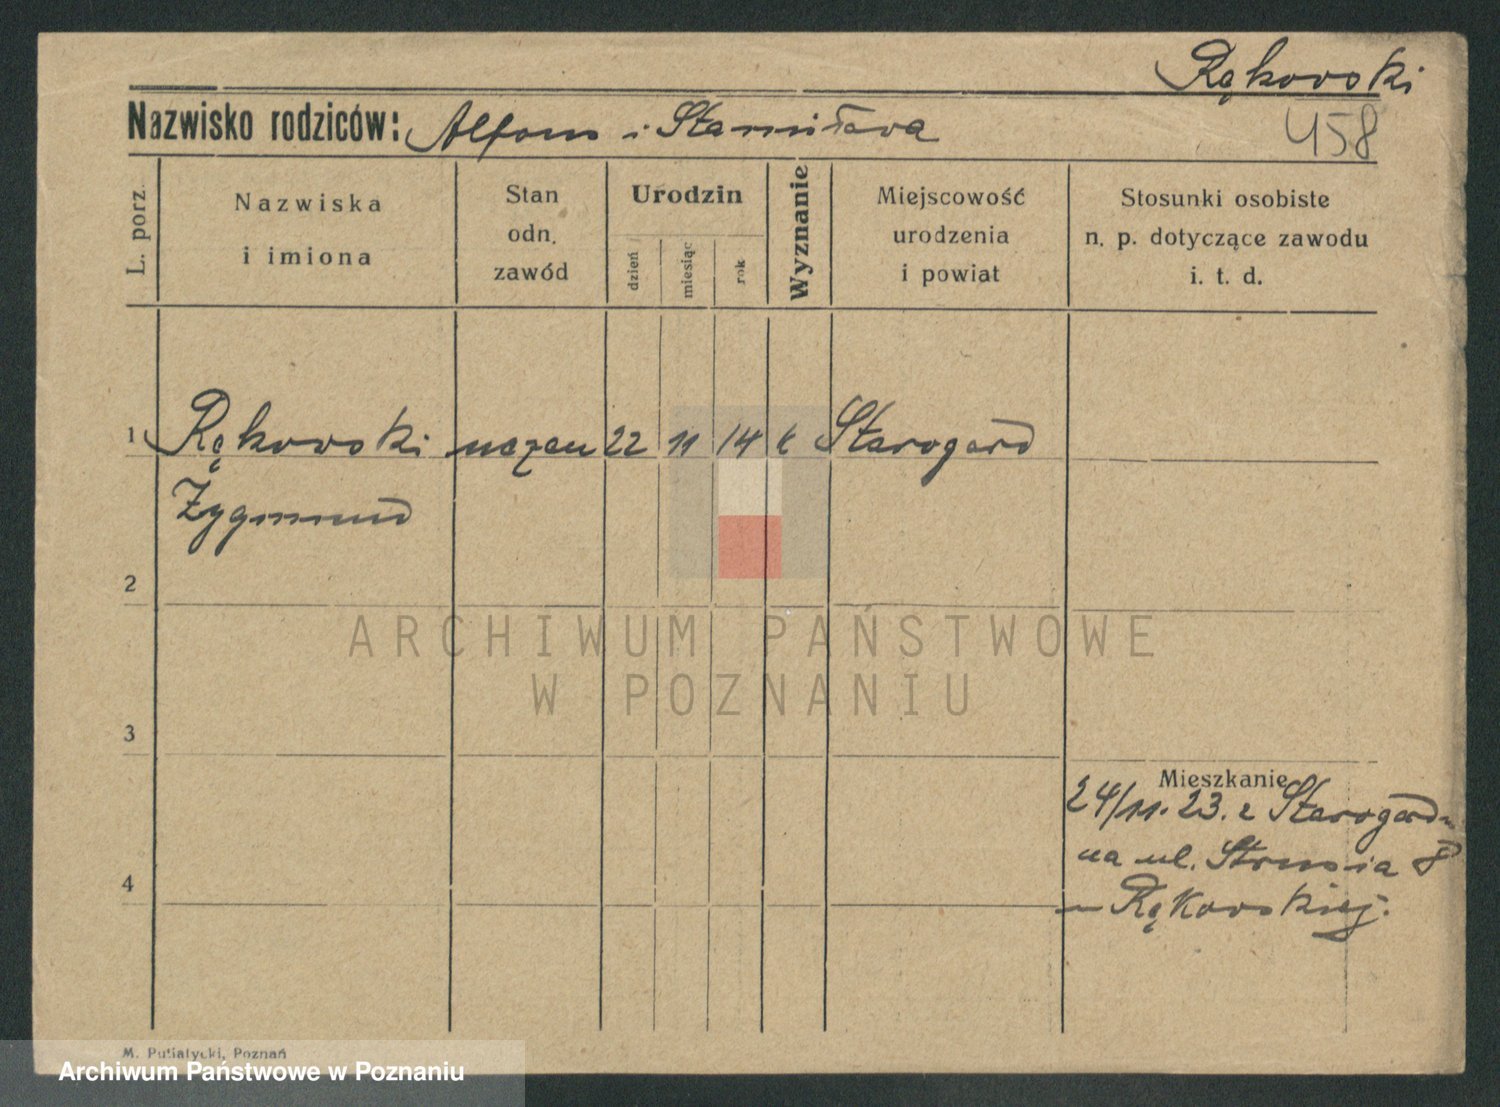 Rękowski
Nazwisko rodziców: Alfons i Stanisława
458
L. porz.
Nazwiska
i imiona
Stan
odn.
zawód
Urodzin
dzień
miesiąc
rok
Wyznanie
Miejscowość
urodzenia
i powiat
Stosunki osobiste
n. p. dotyczące zawodu
i. t. d.
1 Rękowski uczen 22 11 14 k Starogard
Zygmund
2
ARCHIWUM PAŃSTWOWE
W POZNANIU
3
Mieszkanie
24/11. 23. z Starogardu
na ul. Strusia 8
u Rękowskiej.
4
M. Putiatycki, Poznań
Archiwum Państwowe w Poznaniu